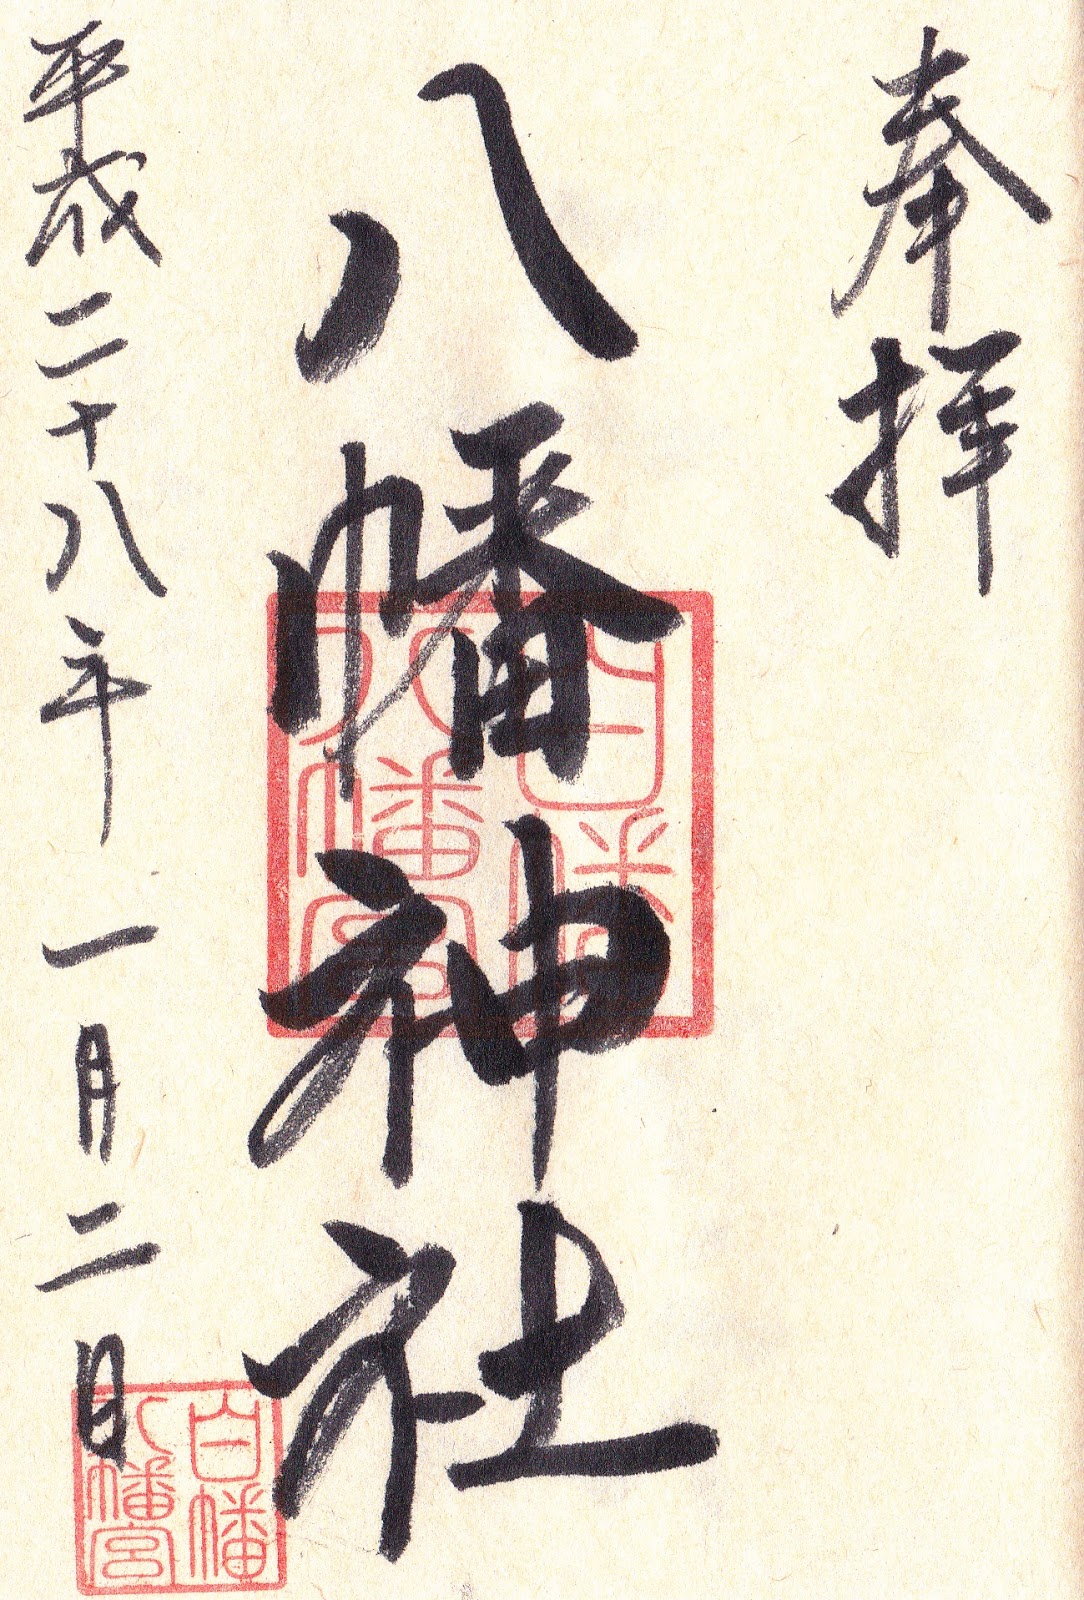 奉拝
八幡神社
平成二十八年一月二日
白幡
八幡宮
白幡
八幡宮